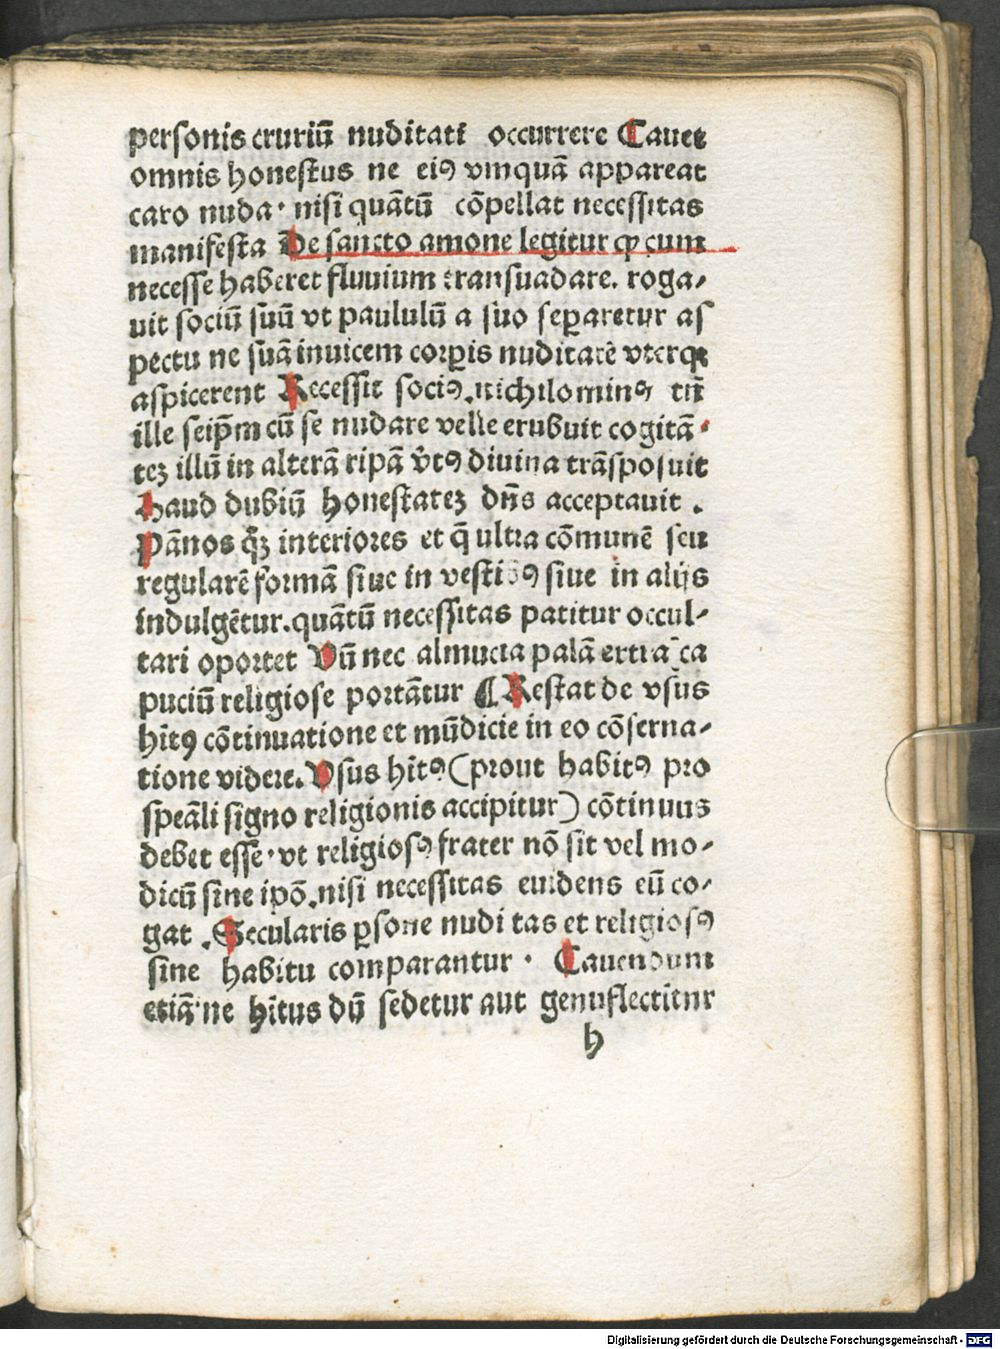 personis cruriū nuditati occurrere Cauet
omnis honestus ne eiꝰ vmquā appareat
caro nuda· nisi quātū cōpellat necessitas
manifesta De sancto amone legitur ꝙ cum
necesse haberet fluuium transuadare. roga⸗
uit sociū suū vt paululū a suo seꝑaretur as
pectu ne suā inuicem corꝑis nuditatē vterqꝫ
aspicerent Recessit sociꝰ.nichilominꝰ tn̄
ille seip̄m cū se nudare velle erubuit cogitā⸗
teꝫ illū in alterā ripā v̓tꝰ diuina trāsposuit
Haud dubiū honestateꝫ dn̄s acceptauit .
Pānos qͣꝫ interiores et q̄ ultra cōmunē seu
regularē formā siue in vestibꝰ siue in alijs
indulgētur.quātū necessitas patitur occul⸗
tari oportet Vn̄ nec almucia palā extra ca
puciū religiose portātur ¶ Restat de vsus
hītꝰ cōtinuatione et mūdicie in eo cōserua⸗
tione videre. Vsus hītꝰ (prout habitꝰ pro
speāli signo religionis accipitur) cōtinuus
debet esse· vt religiosꝰ frater nō sit vel mo⸗
dicū sine ipō.nisi necessitas euidens eū co⸗
gat .Secularis ꝑsone nudi tas et religiosꝰ
sine habitu comparantur · Cauendum
etiā·ne hītus dū sedetur aut genuflectitur
h
Digitalisierung gefördert durch die Deutsche Forschungsgemeinschaft - DFG